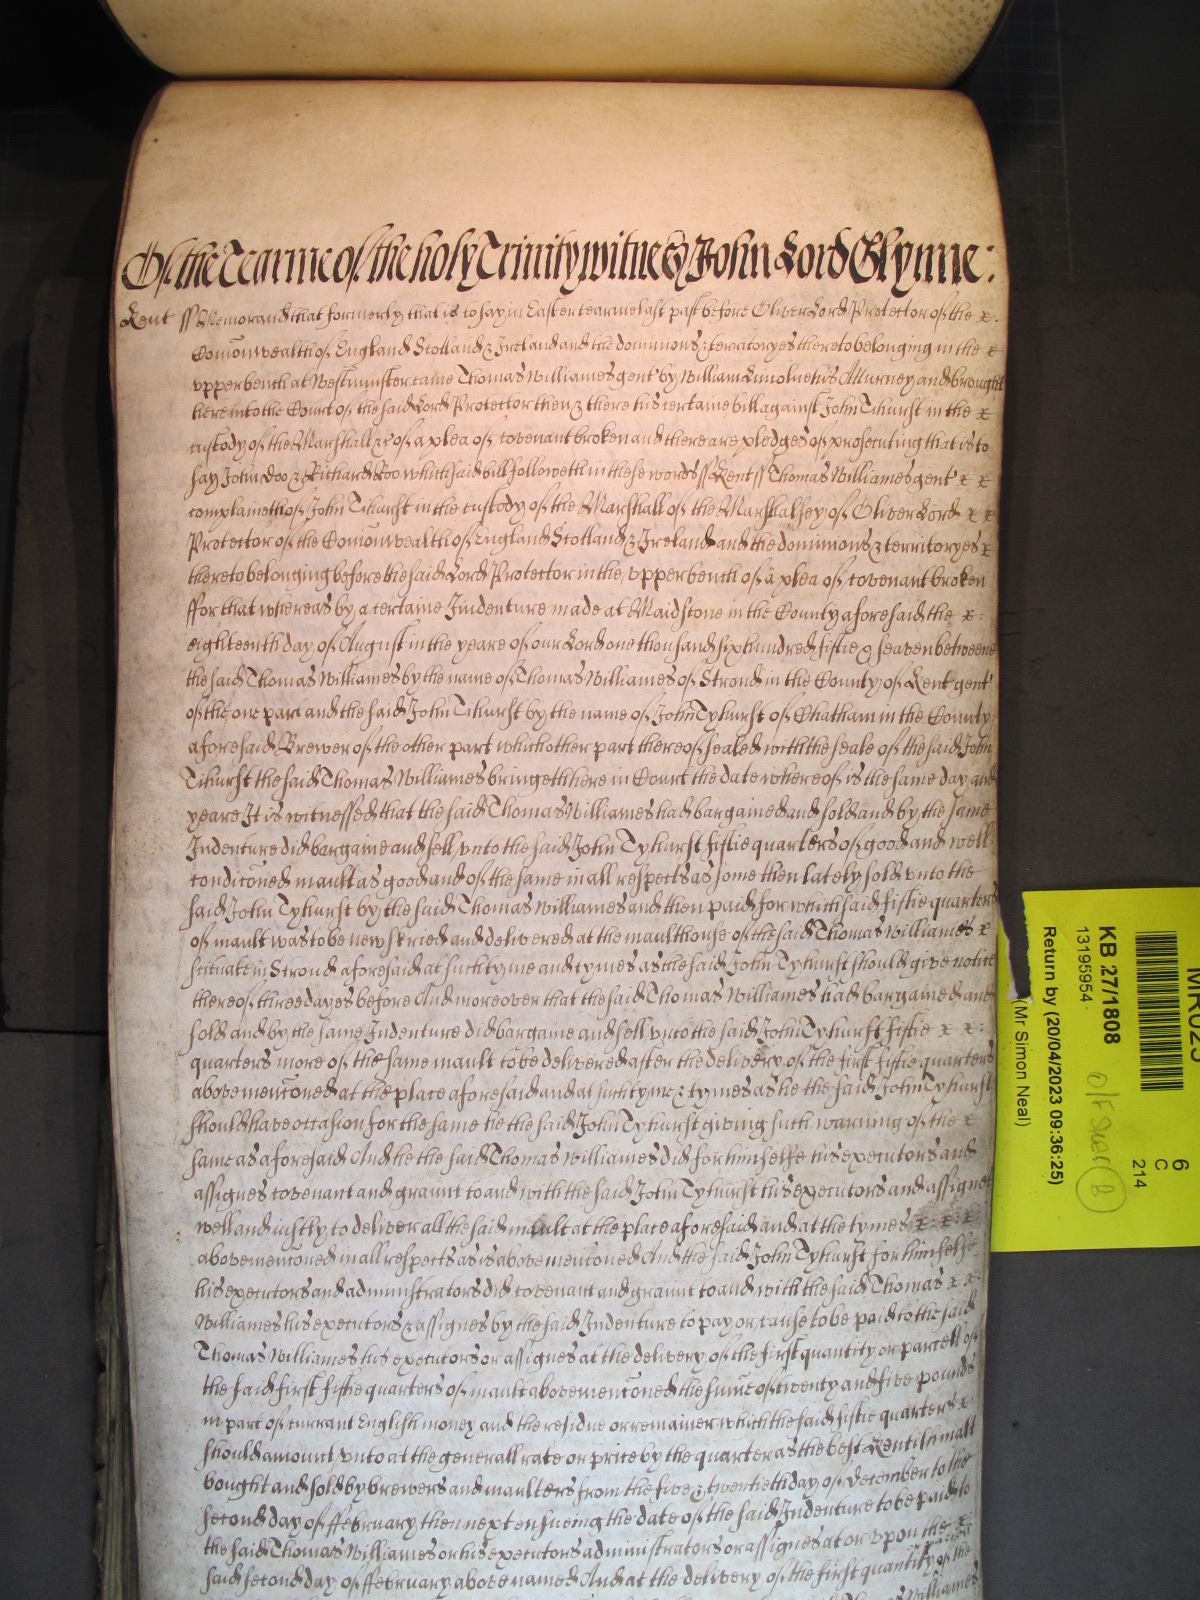 Of the Tearme of the holy Trinity witnes John Lord Glynne:
Kent ss Memorand that formerly that is to say in Easter tearme last past before Oliver Lord Protector of the x:
Comonwealth of England Scotland & Ireland and the dominions & territoryes thereto belonging in the x
upper bench at Westminster came Thomas Williames gent by William Lincolne his Atturney and brought
here into the Court of the said Lord Protector then & there his certaine bill against John Tihurst in the x
custody of the Marshall &c of a plea of covenant broken and there are pledges of prosecuting that is to
say John Doo & Richard Roo which said bill followeth in these words ss Kent ss Thomas Williames gent x x
complaineth of John Tihurst in the custody of the Marshall of the Marshalsey of Oliver Lord x x
Protector of the Comonwealth of England Scotland & Ireland and the dominions & territoryes x
thereto belonging before the said Lord Protector in the upper bench of a plea of covenant broken
ffor that whereas by a certaine Indenture made at Maidstone in the County aforesaid the x:
eighteenth day of August in the yeare of our Lord one thousand six hundred fiftie & seaven betweene
the said Thomas Williames by the name of Thomas Williames of Stroud in the County of Kent gent
of the one part and the said John Tihurst by the name of John Tyhurst of Chatham in the County
aforesaid Brewer of the other part which other part thereof sealed with the seale of the said John
Tihurst the said Thomas Williames bringeth here in Court the date whereof is the same day and
yeare It is witnessed that the said Thomas Williames had bargained and sold and by the same
Indenture did bargaine and sell unto the said John Tyhurst fiftie quarters of good and well
conditoned mault as good and of the same in all respects as some then lately sold unto the
said John Tyhurst by the said Thomas Williames and then paid for which said fiftie quarters
of mault was to be new skried and delivered at the maulthouse of the said Thomas Williames x
scituate in Stroud aforesaid at such tyme and tymes as the said John Tyhurst should give notice
thereof three dayes before And moreover that the said Thomas Williames had bargained and
sold and by the same Indenture did bargaine and sell unto the said John Tyhurst fiftie x x:
quarters more of the same mault to be delivered after the delivery of the first fiftie quarters
abovementoned at the place aforesaid and at such tyme & tymes as he the said John Tyhurst
should have occasion for the same he the said John Tyhurst giving such warning of the x
same as aforesaid And he the said Thomas Williames did for himselfe his executors and
assignes covenant and graunt to and with the said John Tyhurst his executors and assignes
well and iustly to deliver all the said mault at the place aforesaid and at the tymes x: x: x:
abovementoned in all respects as is abovementoned And the said John Tyhurst for himselfe
his executors and administrators did covenant and graunt to and with the said Thomas x x
Williames his executors & assignes by the said Indenture to pay or cause to be paid to the said
Thomas Williames his executors or assignes at the delivery of the first quantity or parcell of
the said first fiftie quarters of mault abovementoned the sume of twenty and five pounds
in part of currant English money and the residue or remainer which the said fiftie quarters x
should amount unto at the generall rate or price by the quarter as the best Kentish malt
bought and sold by brewers and maulters from the five & twentieth day of December to the
second day of ffebruary then next ensueing the date of the said Indenture to be paid to
the said Thomas Williames or his executors administrators or assignes at or upon the x:
said second day of ffebruary above named And at the delivery of the first quantity of the
Williames
MR023
6
C
214
KB 27/1808
13195954
Return by (20/04/2023 09:36:25)
(Mr Simon Neal)